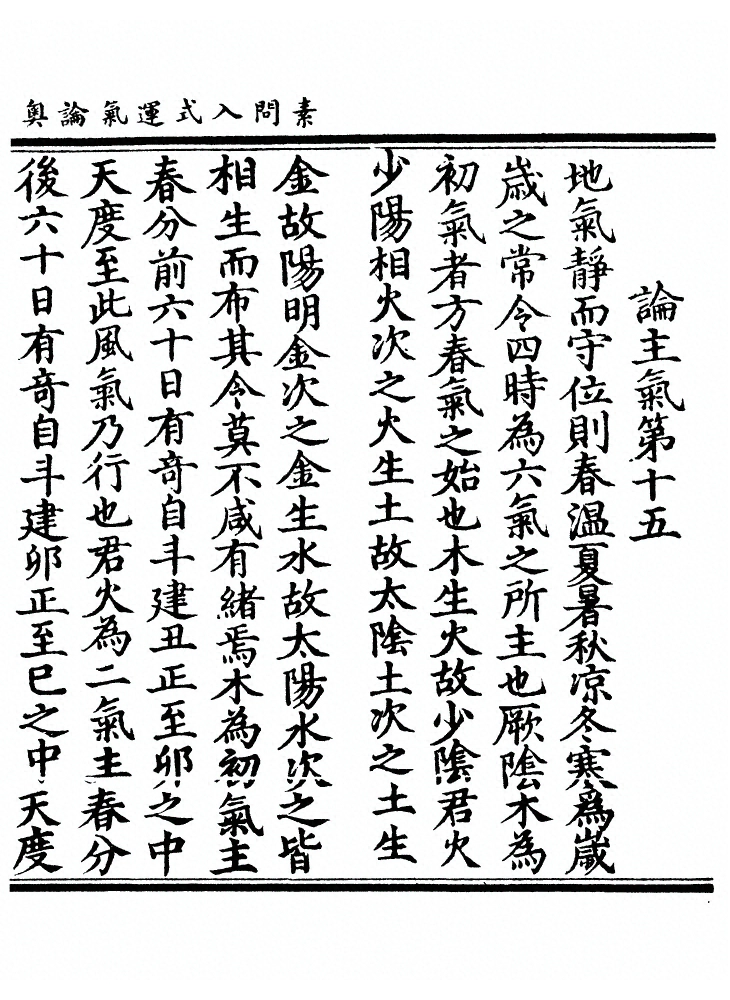 素問入式運氣論奥
論主氣第十五
地氣靜而守位則春温夏暑秋凉冬寒爲歲
歳之常令四時為六氣之所主也厥陰木為
初氣者方春氣之始也木生火故少陰君火
少陽相火次之火生土故太陰土次之土生
金故陽明金次之金生水故太陽水次之皆
相生而布其令莫不咸有緒焉木為初氣主
春分前六十日有竒自斗建丑正至卯之中
天度至此風氣乃行也君火為二氣主春分
後六十日有竒自斗建卯正至巳之中天度